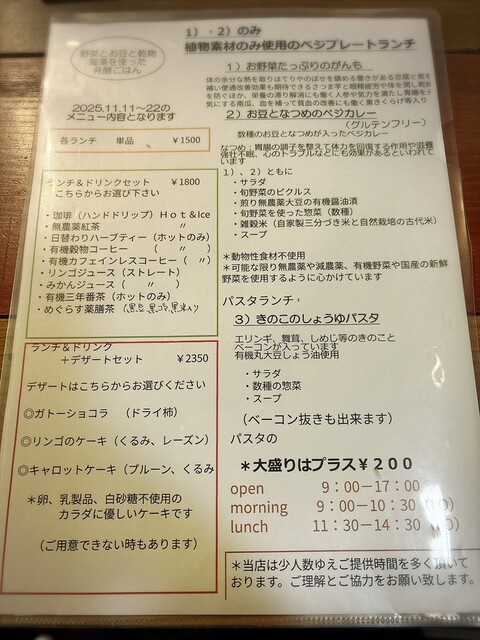 野菜とお豆と乾物
海藻を使った
発酵ごはん
2025.11.11～22の
メニュー内容となります
各ランチ 単品 ￥1500
ランチ＆ドリンクセット ￥1800
こちらからお選び下さい
・珈琲（ハンドドリップ）Ｈｏｔ＆Ice
・無農薬紅茶 〃
・日替わりハーブティー（ホットのみ）
・有機穀物コーヒー （ 〃 ）
・有機カフェインレスコーヒー（ 〃）
・リンゴジュース（ストレート）
・みかんジュース（ 〃 ）
・有機三年番茶（ホットのみ）
・めぐらす薬膳茶（黒豆、黒ゴマ、黒米入り
ランチ＆ドリンク
＋デザートセット ￥2350
デザートはこちらからお選びください
◎ガトーショコラ （ドライ柿）
◎リンゴのケーキ（くるみ、レーズン）
◎キャロットケーキ（プルーン、くるみ
＊卵、乳製品、白砂糖不使用の
カラダに優しいケーキです
（ご用意できない時もあります）
１）・２）のみ
植物素材のみ使用のベジプレートランチ
１）お野菜たっぷりのがんも
体の余分な熱を取りほてりやのぼせを鎮める働きがある豆腐に気を
補い便通改善効果も期待できるさつま芋と眼精疲労や体を潤し乾燥
を防ぐほか、栄養の滞り解消にも働く人参や気力を満たし胃腸を
気にする南瓜、血を補って貧血の改善にも働く黒きくらげ等入り
２）お豆となつめのベジカレー
（グルテンフリー）
数種のお豆となつめが入ったベジカレー
なつめ：胃腸の調子を整えて体力を回復する作用や滋養
強壮不眠、心のトラブルなどにも効果があるといわれて
います
１）、２）ともに
・サラダ
・旬野菜のピクルス
・煎り無農薬大豆の有機醤油漬
・旬野菜を使った惣菜（数種）
・雑穀米（自家製三分づき米と自然栽培の古代米）
・スープ
＊動物性食材不使用
＊可能な限り無農薬や減農薬、有機野菜や国産の新鮮
野菜を使用するように心かけています
パスタランチ
３）きのこのしょうゆパスタ
エリンギ、舞茸、しめじ等のきのこと
ベーコンが入っています
有機丸大豆しょう油使用
・サラダ
・数種の惣菜
・スープ
（ベーコン抜きも出来ます）
パスタの
＊大盛りはプラス￥２００
open 9：00－17：00
morning 9：00－10：30
lunch 11：30－14：30
＊当店は少人数ゆえご提供時間を多く頂いて
おります。ご理解とご協力をお願い致します。